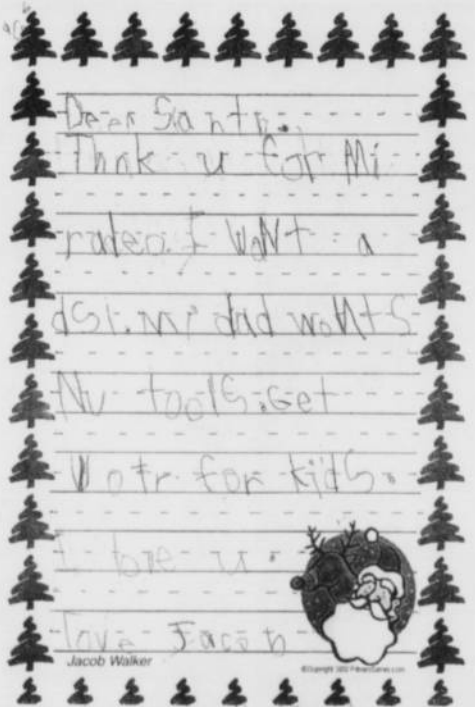 Dear Santa..
Thnk u for Mi
radeo. I WaNt a
dsi. mi dad waNts
Nu tools. Get
Wotr for kids.
I love u.
love Jacob
Jacob Walker